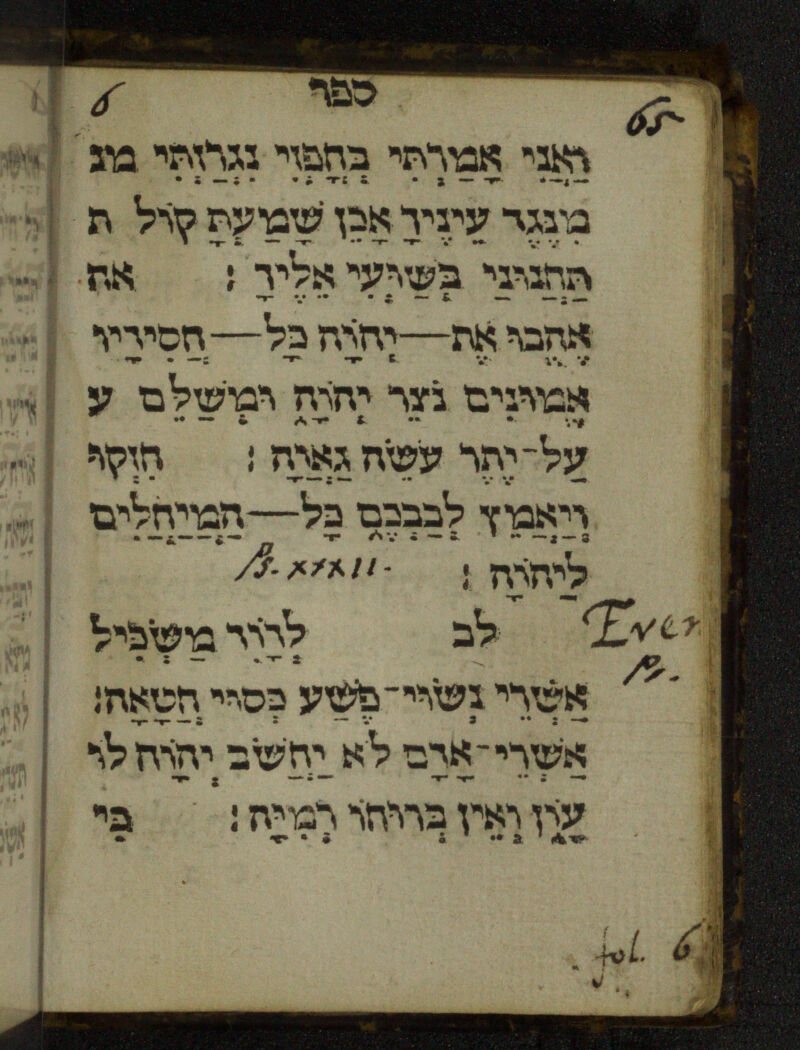 6 ספר 65
וַאֲנִי אָמַרְתִּי בְחָפְזִי נִגְרַזְתִּי מנ
מִנֶּגֶד עֵינֶיךָ אָכֵן שָׁמַעְתָּ קוֹל ת
תַּחֲנוּנַי בְּשַׁוְּעִי אֵלֶיךָ : אה
אֶהֱבוּ אֶת—יְהֹוָה כָּל—חֲסִידָיו
אֱמוּנִים נֹצֵר יְהֹוָה וּמְשַׁלֵּם ע
עַל־יֶתֶר עֹשֵׂה גַאֲוָה : חִזְקוּ
וְיַאֲמֵץ לְבַבְכֶם כָּל—הַמְיַחֲלִים
לַיהֹוָה : Ps. XXXII.
Ever
לב לְדָוִד מַשְׂכִּיל
Ps.
אַשְׁרֵי נְשׂוּי־פֶּשַׁע כְּסוּי חֲטָאָה:
אַשְׁרֵי־אָדָם לֹא יַחְשֹׁב יְהֹוָה לוֹ
עָוֹן וְאֵין בְּרוּחוֹ רְמִיָּה : כִּי
fol. 6